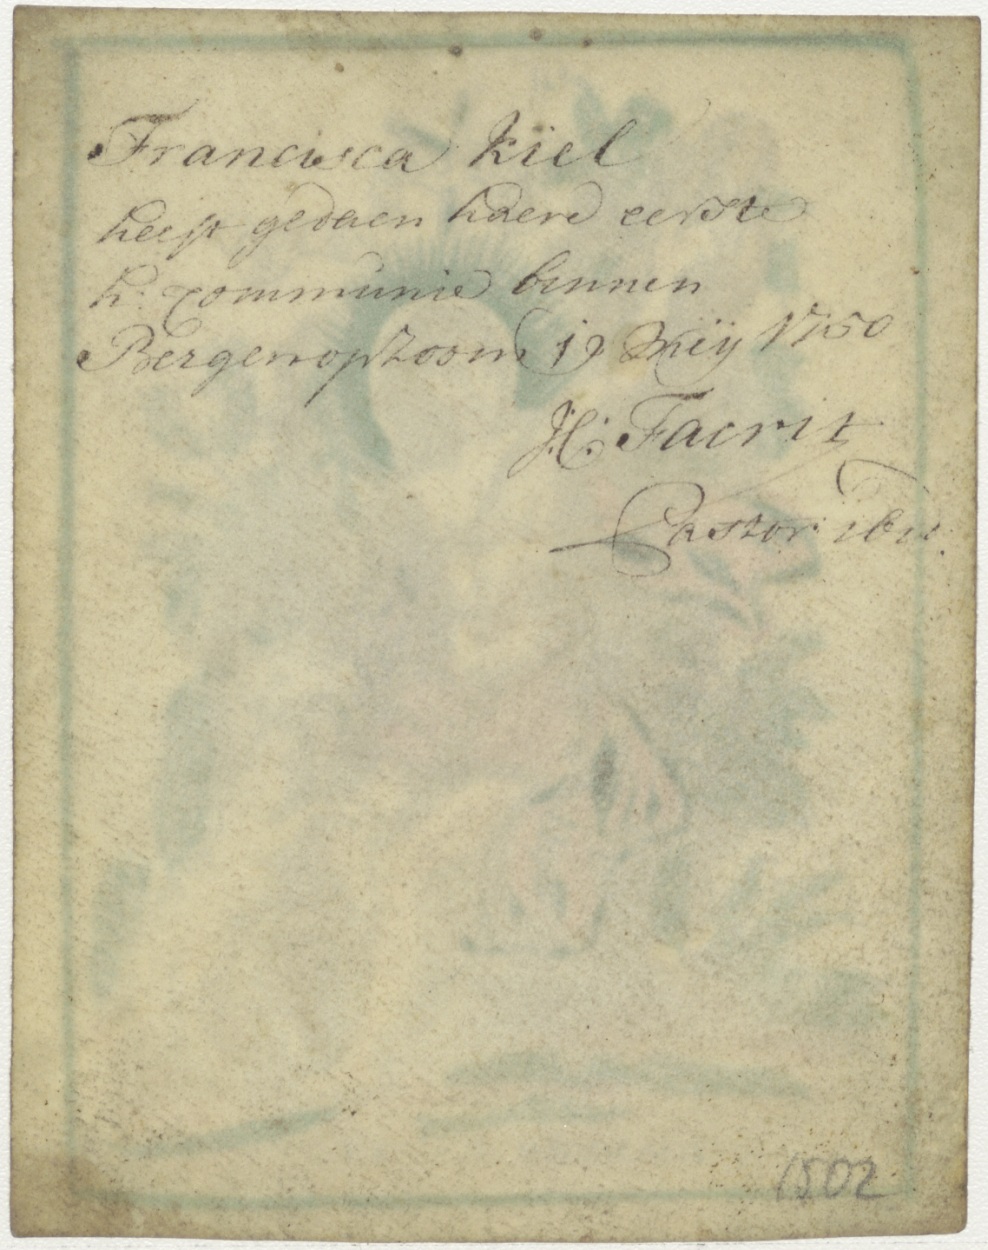 Francisca kiel
heeft gedaen haere eerste
h: communie binnen
Bergenopzoom 19 Meÿ 1750
H: Facrit
Pastor ibid.
1502